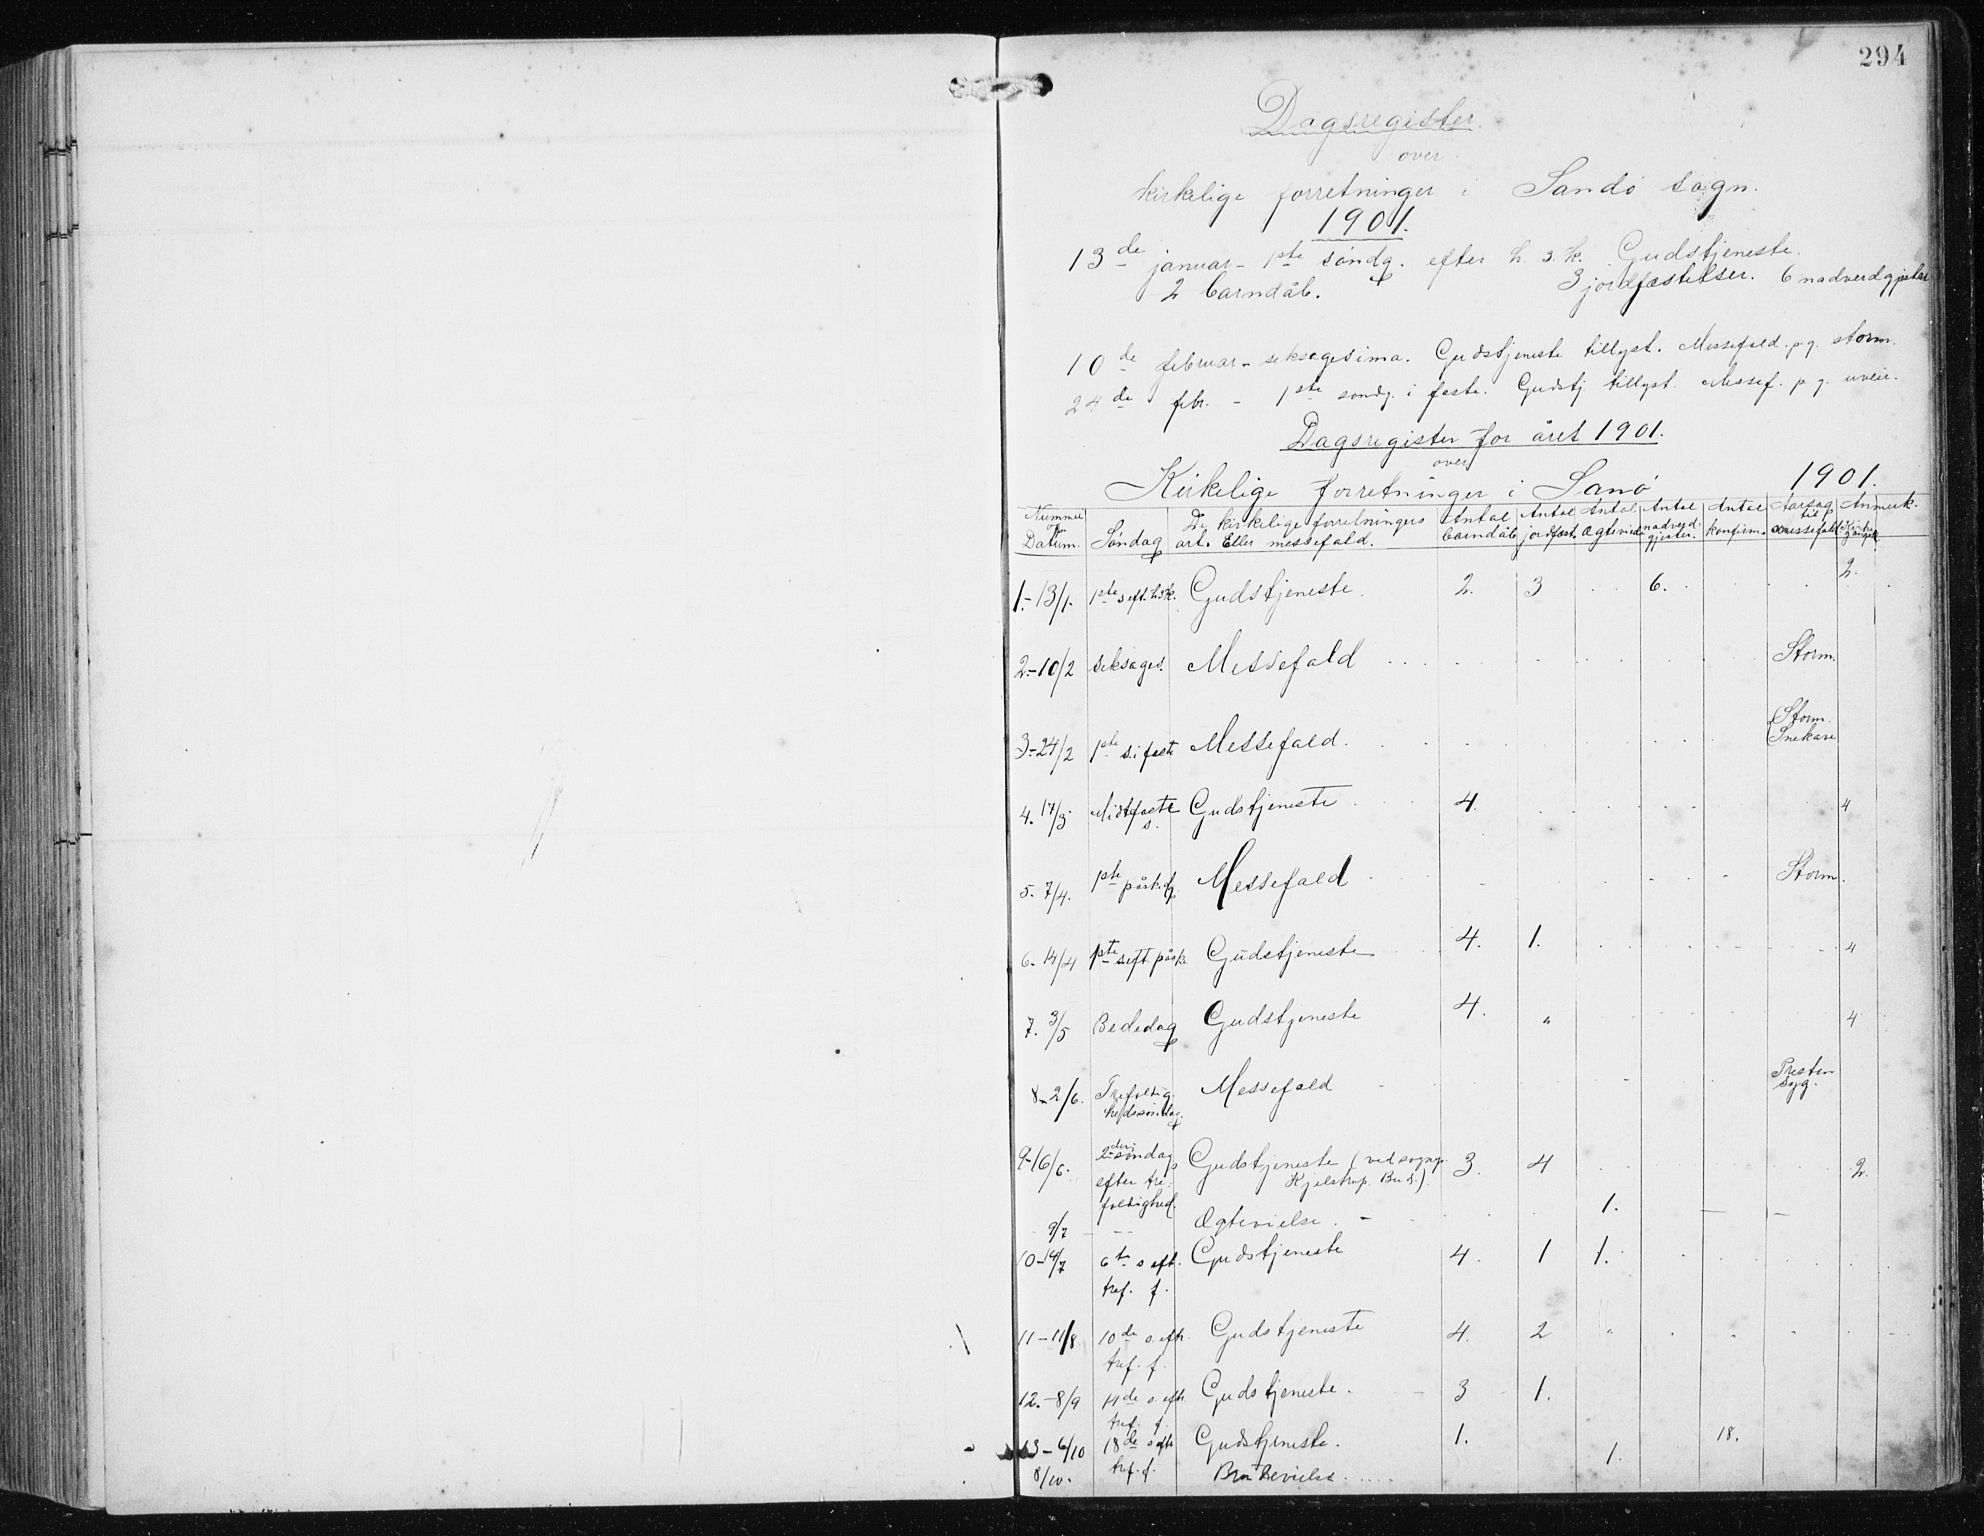 294
Dagsregister
over
kirkelige forretninger i Sandø sogn.
1901.
13de januar - 1ste søndg. efter h. 3. k. Gudstjeneste.
2 barndåb. 3 jordfæstelser. 6 nadverdgjester
10de februar - seksagesima. Gudstjeneste tillyst. Messefald. p. g. storm.
24de febr. - 1ste søndg. i faste. Gudstj. tillyst. Messef. p. g. uveir.
Dagsregister for året 1901.
over
Kirkelige forretninger i Sanø 1901.
Nummer og Datum. Søndag De kirkelige forretningers art. Eller messefald. Antal barndåb Antal jordfæst. Antal Ægtevied Antal nadverdgjester. Antal konfirm. Aarsag til messefald Anmerk.
1.-13/1. 1ste s eft. h3k. Gudstjeneste. 2. 3 6. 2.
2.-10/2 seksages. Messefald Storm.
3.-24/2 1ste s. i faste Messefald. Storm. Snekave
4. 17/3 Midtfaste s. Gudstjeneste 4. 4
5. 7/4. 1ste påsk.dg. Messefald Storm.
6. 14/4 1ste s eft påsk Gudstjeneste 4. 1. 4
7. 3/5 Bededag Gudstjeneste 4. " 4
8-2/6. Trefoldighedssøndag. Messefald Presten syg.
9-16/6. 2den søndag efter trefoldighed. Gudstjeneste (ved sognp. Kjelstrup. Bud.). 3. 4 2.
9/7 - -- Ægtevielse. 1.
10-14/7 6te s eft. tref. f. Gudstjeneste 4. 1 1.
11-11/8 10de s. eft. tref. f. Gudstjeneste 4. 2 "
12.-8/9 14de s. eft. tref. f. Gudstjeneste. 3 1.
13-6/10 18de s eft. tref. f. Gudstjeneste. 1. 18.
8/10. Brudevielse 1.